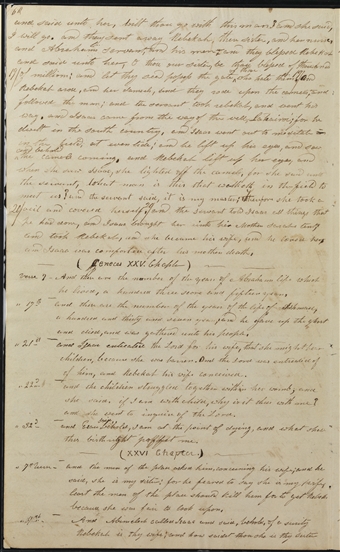 64
and said unto her, wilt thou go with this man? and she said,
I will go. and they sent away Rebekah, their sister, and her nurse,
and Abraham's servant, and his men; and they blessed Rebekah
and said unto her, thou our sister, be thou blessed of thousands
of million; and let thy seed possess the gate of those hate them; and
Rebekah arose, and her damsels, and they rode upon the camels, and
followed the man; and the servant took rebekah, and went his
way, and Isaac came from the way of the well, Lahairoi; for he
dwelt in the south country, and Isaac went out to meditate in
the field, at even tide; and he lift up his eyes, and saw
and behold the camels coming, and Rebekah left up her eyes, and
when she saw Isaac, she lighted off the camels, for she said unto
the servant, What man is this that walketh in the field to
meet us? and the servant said, it is my master; therefore she took a
vail and covered herself; and the servant told Isaac all things that
he had done, and Isaac brought her into his Mother Sarahs tent
and took Rebekah, and she became his wife, and he loved her,
and Isaac was comforted after his mother death.
(Genesis XXV Chapter)
verse 7 - And these are the number of the years of Abraham life which
he lived, a hundred three score and fifteen years.
" 17th - and these are the number of the years of the life of Ishmael,
a hundred and thirty and seven years, and he gave up the ghost
and died, and was gathered unto his people.
" 21st - and Isaac entreated the Lord for his wife, that she might bear
children, because she was barren. And the Lord was entreated of
of him, and Rebekah his wife conceived.
" 22nd - and the children struggled together within her womb, and
she said, if I am with child, why is it thus with me?
and she went to inquire of the Lord.
" 32nd - and Esau said, Behold, I am at the point of dying, and what shall
this birthright profit me.
(XXVI Chapter)
" 7th verse - and the men of the place asked him, concerning his wife; and he
said, she is my sister; for he feared to say she is my wife,
lest the man of the place should kill him for to get Rebekah
because she was fair to look upon.
" - And Abimelech called Isaac and said, behold, of a surety
Rebekah is thy wife; and how saidst thou she is thy sister